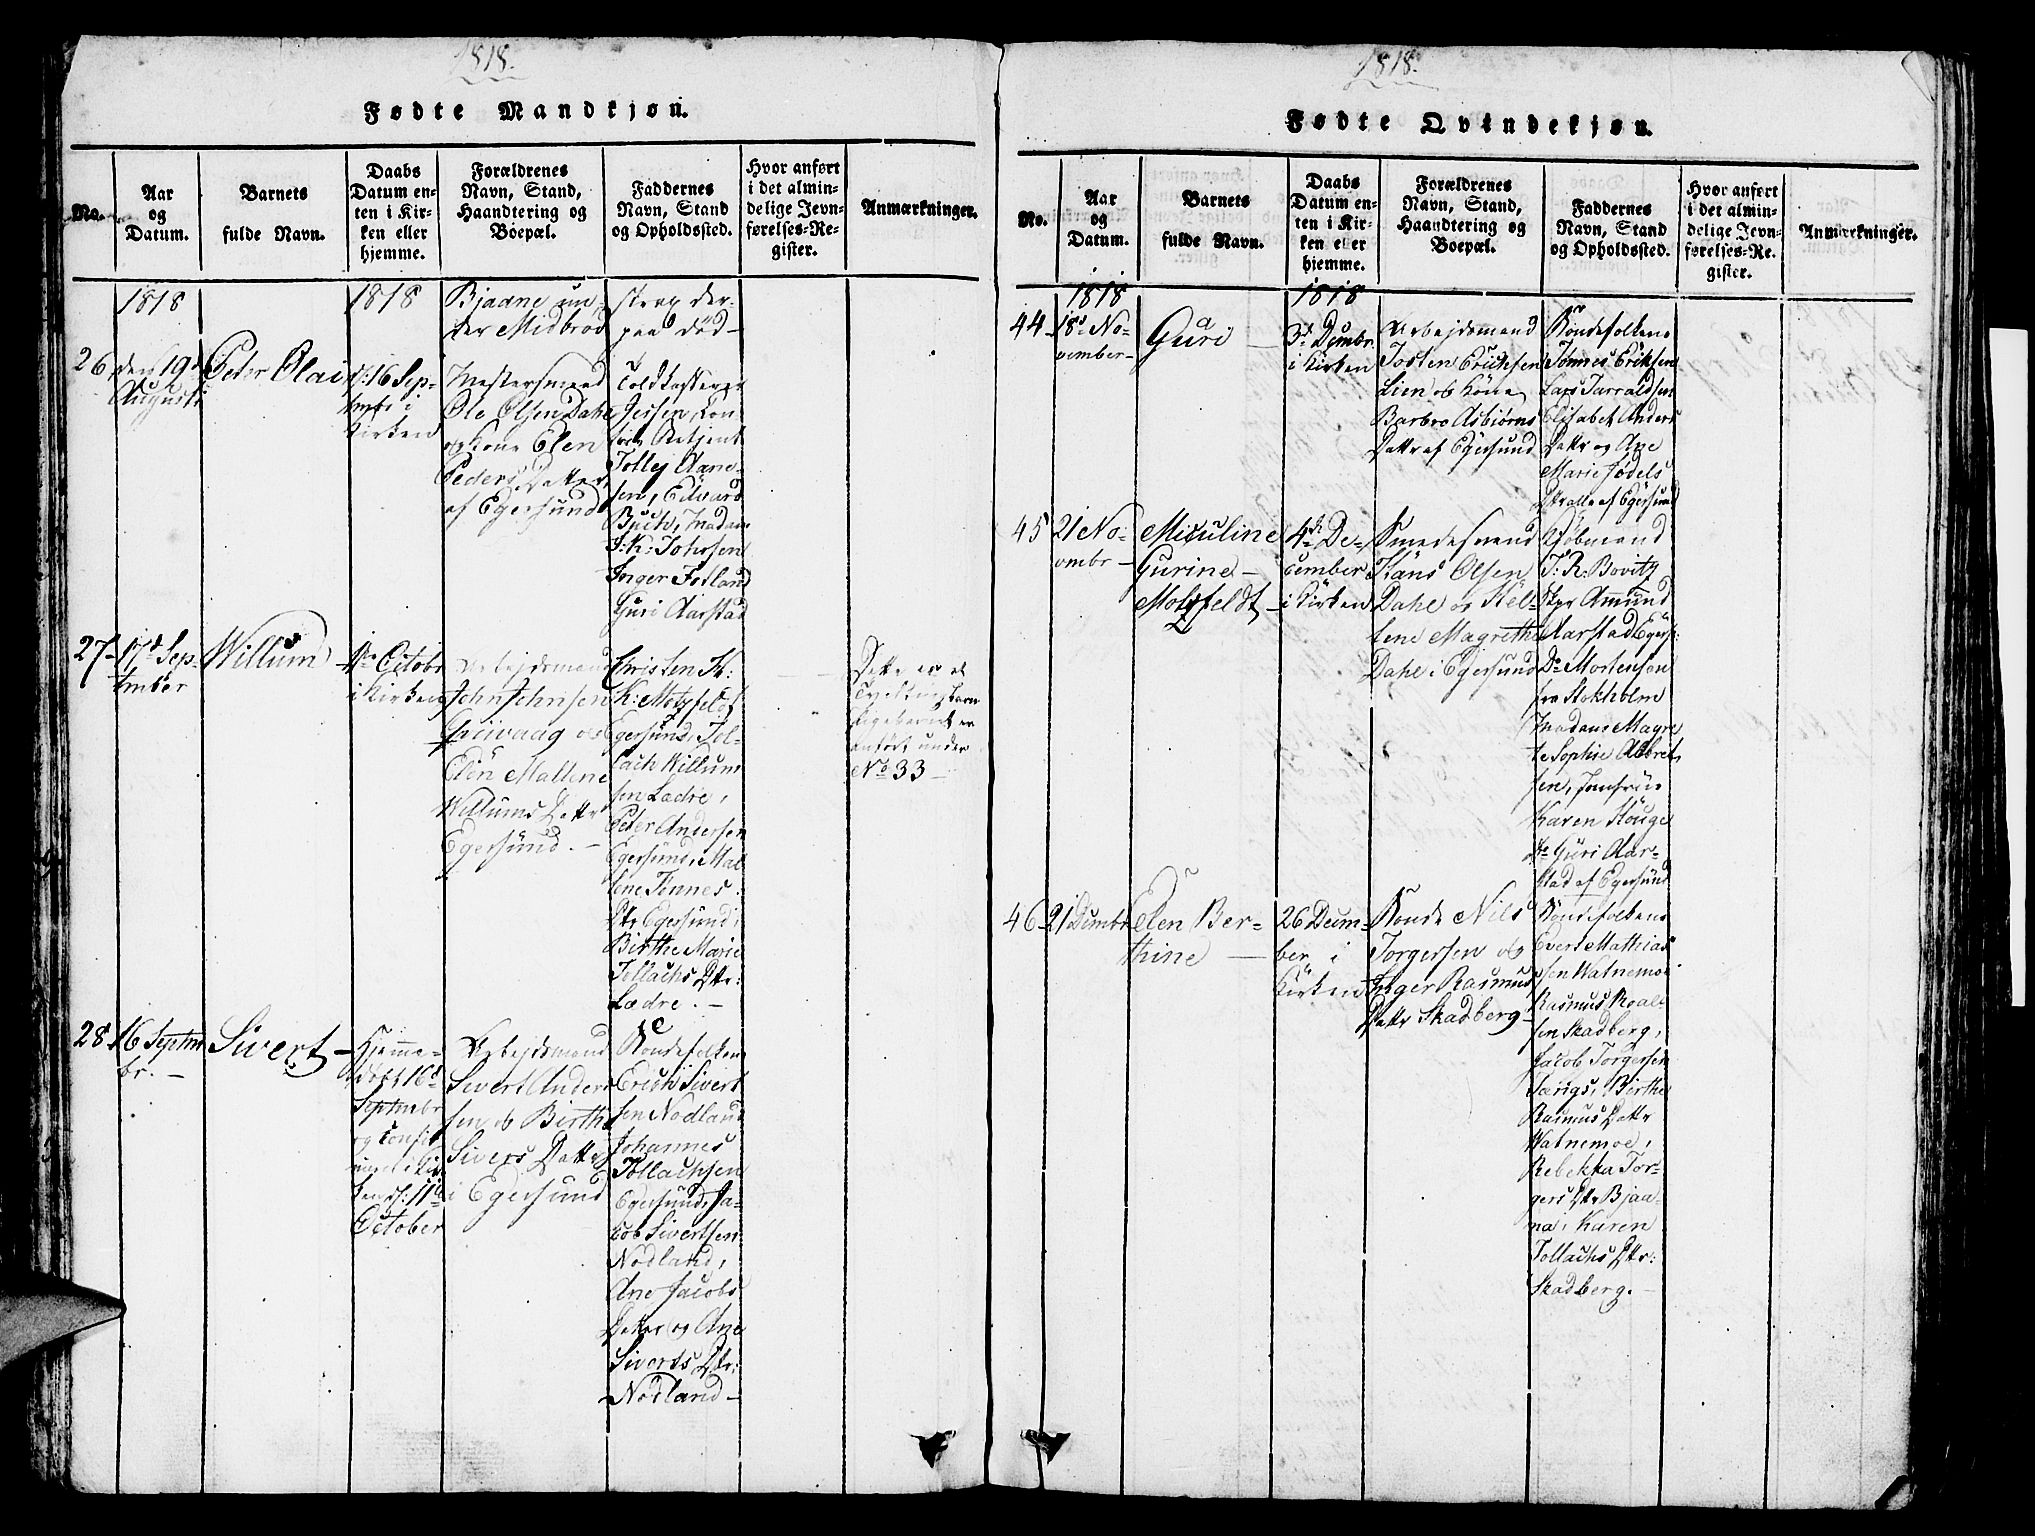 1818.
Fødte Mandkjøn.
No.
Aar
og
Datum.
Barnets
fulde Navn.
Daabs
Datum en-
ten i Kir-
ken eller
hjemme.
Forældrenes
Navn, Stand,
Haandtering og
Boepæl.
Faddernes
Navn, Stand
og Opholdssted.
Hvor anført
i det almin-
delige Jevn-
førelses-Re-
gister.
Anmærkninger.
1818
1818
Bjaane un-
der Midbrød
strax der-
paa død
26
den 19d
Augusti
Peter Olai
d: 16 Sep-
tmbr i
Kirken
Mestersmand
Ole Olsen Dahe
og Kone Elen
Peders Datter
af Egersund
Toldkasserer
Jessen, Con-
Betjent
Tolley Aane-
sen, Edvard
Buch, Madam
J: K: Johnsen
Inger Fotland
Guri Aarstad
27
17d Sep-
tember
Willum
4de Octobr
i Kirken
Arbejdsmand
John Johnsen
Spiivaag og
Elen Mallene
Willums Dattr
Egersund.
Christen H:
K: Motzfeldt
Egersund, Tol-
lach Willum
sen Ladre,
Peter Andersen
Egersund, Mal
lene Tønnes
Dtr Egersund,
Birthe Marie
Tollachs Dtr:
Lædre.
Dette er et
Tvellingbarn
Pigebarnet er
anført under
No 33
28
16 Septm
br.
Sivert
Hjemme-
døbt 16d
Septmbr
og Confir
meret i Kir
ken d: 11te
October
Arbejdsmand
Sivert Anders
sen og Birthe
Sivers Dattr
i Egersund
Bondefolkene
Erich Sivert
sen Nodland
Johannes
Tollachsen
Egersund, Ja-
cob Sivertsen
Nodland,
Ane Jacobs
Datter og Ane
Siverts Dtr:
Nodland
1818.
Fødte Qvindekjøn.
No.
Aar
og
Datum.
Barnets
fulde Navn.
Daabs
Datum en-
ten i Kir-
ken eller
hjemme.
Forældrenes
Navn, Stand,
Haandtering og
Boepæl.
Faddernes
Navn, Stand
og Opholdssted.
Hvor anført
i det almin-
delige Jevn-
førelses-Re-
gister.
Anmærkninger.
1818
1818
44
18d No-
vember
Guri
3d Decmbr
i Kirken
Arbejdsmand
Josten Erichsen
Lien og Kone
Barbro Asbiørns
Dattr af Egersund
Bondefolkene
Tønnes Eriksen
Lars Tarraldsen
Elisabet Anders
Dattr og Ane
Marie Jødels
Dtr alle af Egersund
45
21 No-
vembr
Miculine
Gurine
Motzfeldt
4de De-
cember
i Kirken
Smedesvend
Hans Olsen
Dahe og Hel-
lene Magrethe
Dahe i Egersund
Kjøbmand
J: R: Bovitz
Skpr Amund
Aarstad Egers:
Do Mortensen
fra Stokholm
Madame Magre
te Sophie Albret
sen, Jomfrue
Karen Houge
Guri Aar-
stad af Egersund
46
21 Decmbr
Elen Ber-
thine
26 Decm-
ber i
Kirken
Bonde Nils
Torgersen og
Inger Rasmus
Dattr Skadberg
Bondefolkene
Evert Mathias
sen Watnemoe
Rasmus Roald
sen Skadberg,
Jacob Torgersen
Tængs, Birthe
Rasmus Dattr
Watnemoe,
Rebekka Tor-
gers Dtr Bjaa-
na, Karen
Tollachs Dtr:
Skadberg.